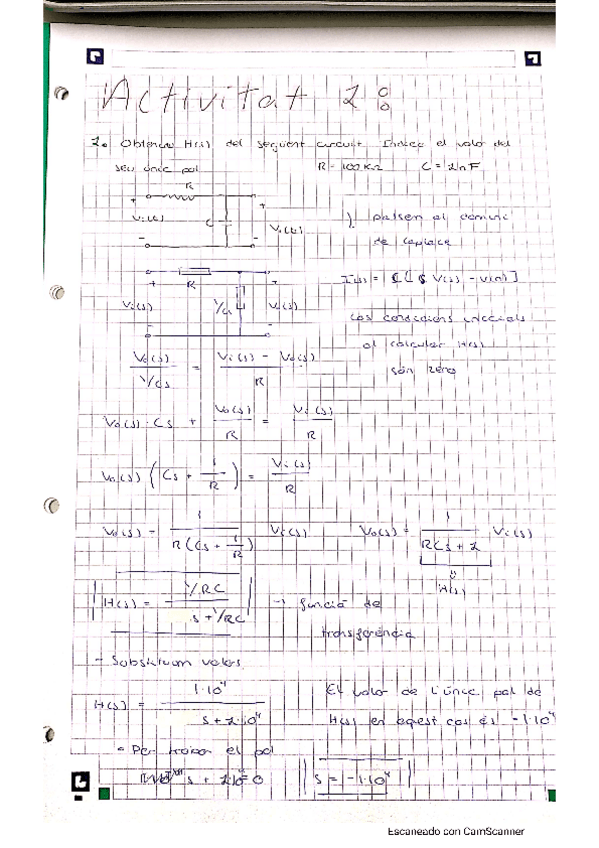 Activitat 1:
1. Obtenir H(s) del següent circuit. Indica el valor del
seu únic pol R = 100 KΩ C = 1nF
R
+ +
Vi(t) C
- -
1) passem al domini
de Laplace
R
+ +
Vi(s) 1/Cs Vo(s)
- -
I(s) = C [s V(s) - v(0)]
Les condicions inicials
al calcular H(s)
són zero
Vo(s) / 1/Cs = Vi(s) - Vo(s) / R
Vo(s) · Cs + Vo(s)/R = Vi(s)/R
Vo(s) (Cs + 1/R) = Vi(s)/R
Vo(s) = 1 / R(Cs + 1/R) Vi(s) Vo(s) = 1 / RCs + 1 Vi(s)
H(s)
H(s) = 1/RC / s + 1/RC → funció de
transferència
- Substituim valors
H(s) = 1·10⁴ / s + 1·10⁴
El valor de l'únic pol de
H(s) en aquest cas és -1·10⁴
• Per trobar el pol
s + 1·10⁴ = 0 s = -1·10⁴
Escaneado con CamScanner